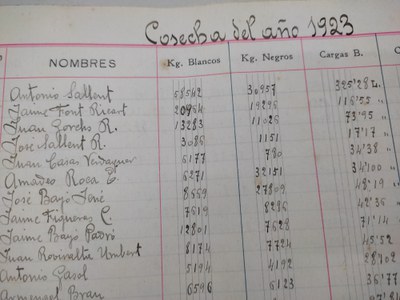 Cosecha del año 1923
NOMBRES Kg. Blancos Kg. Negros Cargas B.
Antonio Sallent 58542 30957 325'28
Jaime Font Ricart 20964 19296 116'55 "
Juan Gorchs R. 13283 11026 73'95 "
José Sallent R. 3086 1151 17'17 "
Juan Casas 6177 780 34'38 "
Amadeo Roca 6271 32151 34'100 "
José Bayó José 8669 27809 48'19 "
Jaime Figueras C. 7619 8286 42'36 "
Jaime Bayó Padró 12801 7628 71'14 "
Juan Rovira 8174 7724 45'52
Antonio Gasol 5194 4192
Armengol Brau 6596 6123 36'77